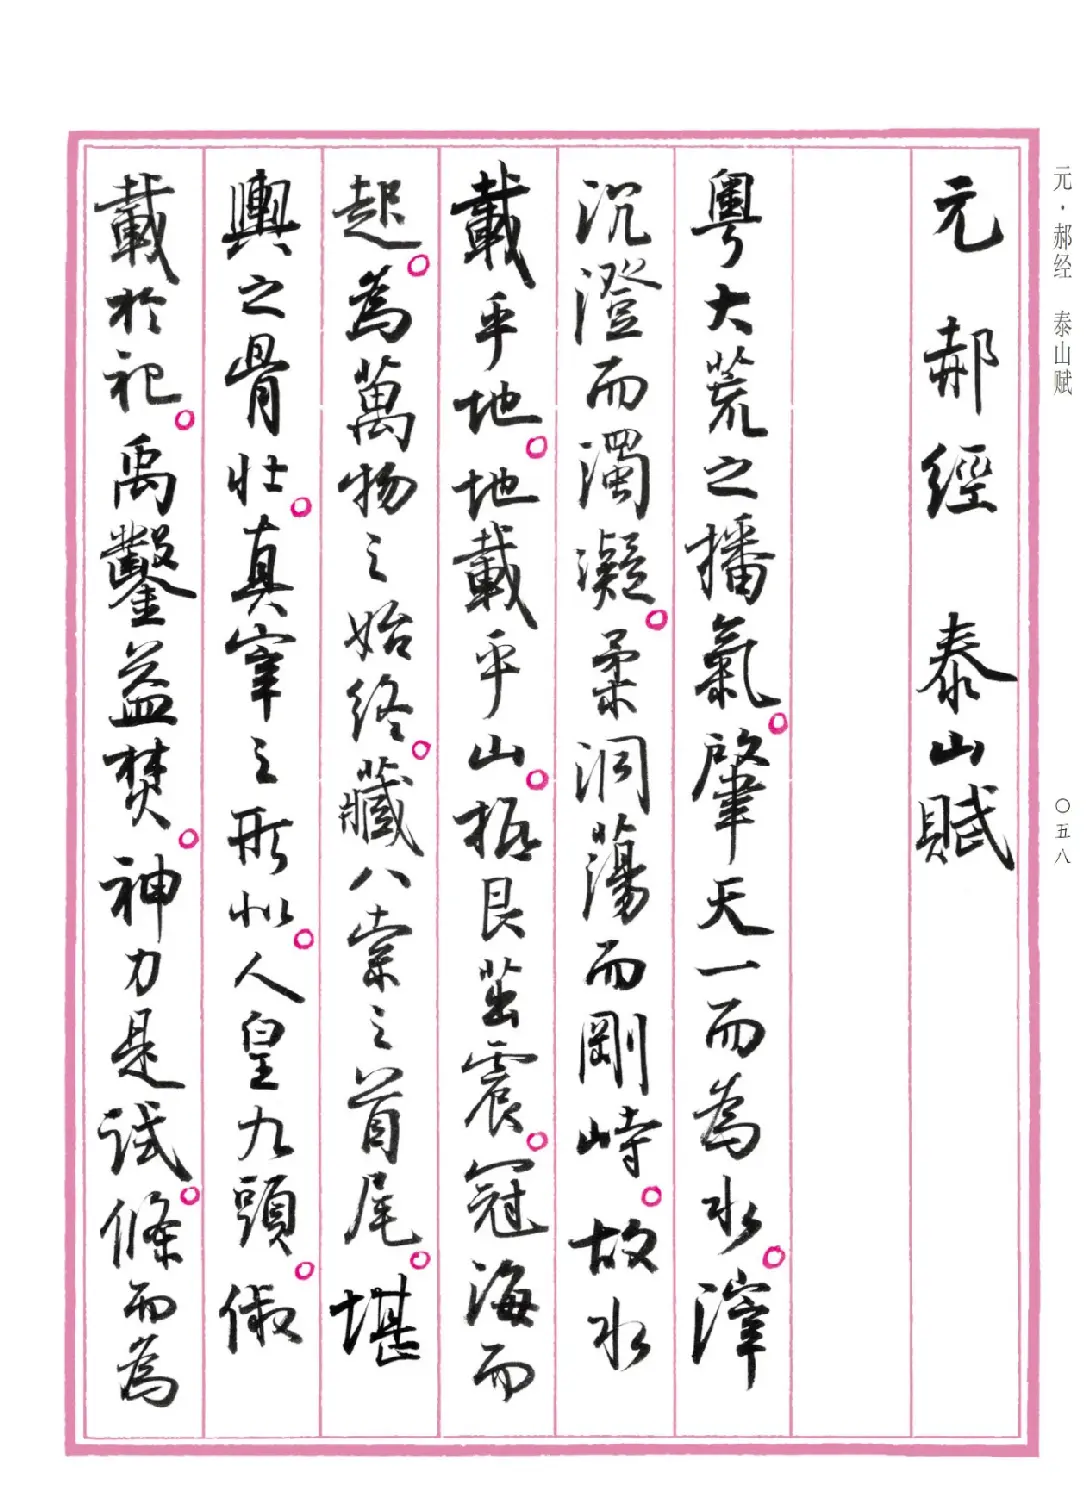 元·郝经 泰山赋
〇五八
元郝經 泰山賦
粵大荒之播氣。肇天一而為水。滓
沉澄而濁凝。柔洞蕩而剛峙。故水
載乎地。地載乎山。振艮茁震。冠海而
起。為萬物之始終。藏八紘之首尾。堪
輿之骨壯。真宰之形似。人皇九頭。俶
載於祀。禹鑿益焚。神力是試。條而為